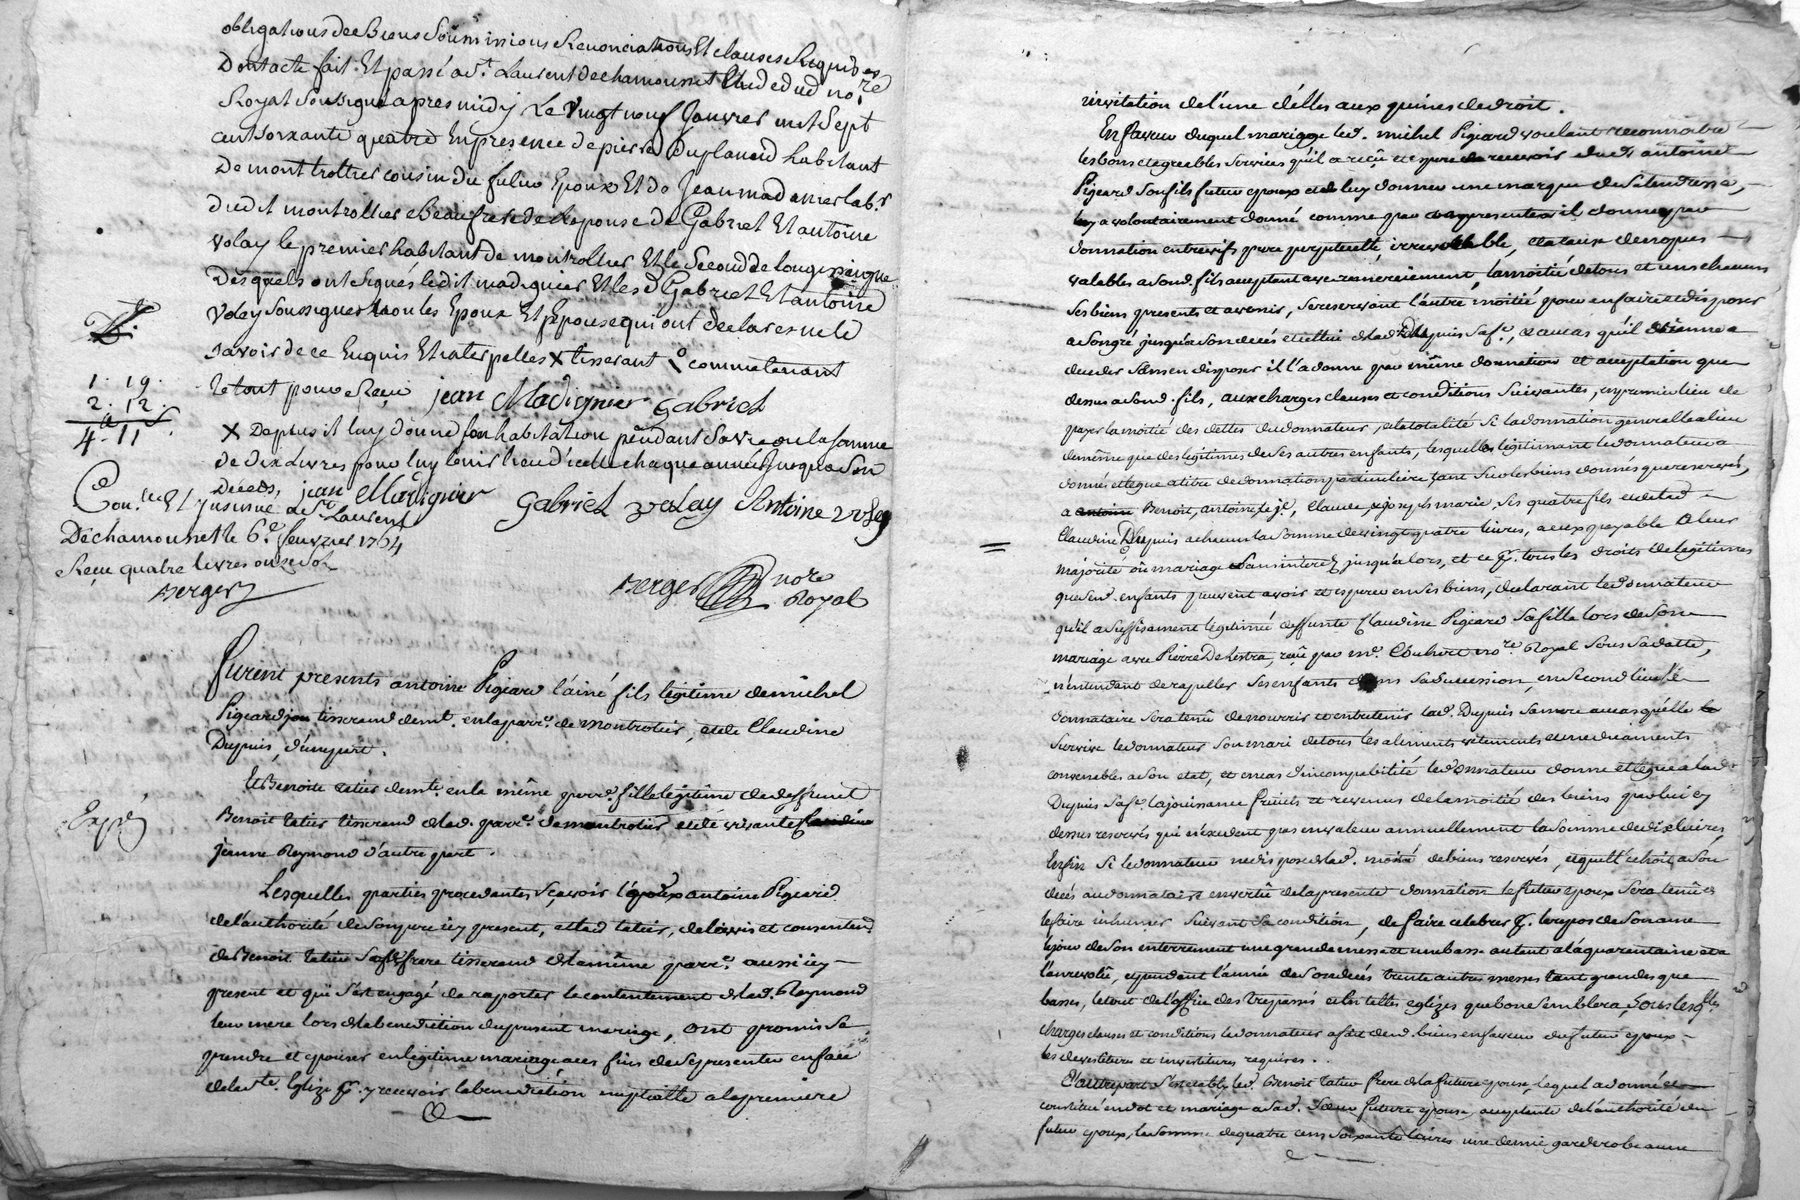 obligations de Biens Soumissions Renonciations Et clauses Requises
Dont acte fait Et passé a st. Laurent de chamousset Etude du no.re
Royal Soussigné apres midy Le Vingt neuf Janvier mil Sept
cent soixante quatre En presence de pierre Duplanid habitant
De montrottier cousin du futur Epoux Et de Jean madinier lab.r
dudit montrottier Beaufrere de l'epouse de Gabriel Et antoine
volay le premier habitant de montrottier Et le Second de longessaigne
Desquels ont Signés ledit madignier Et les d Gabriel Et antoine
Volay Soussignes non les Epoux Et l'Epouse qui ont declaré ne le
Savoir de ce Enquis Et interpelles X tisserant comme tenant
le tout pour Reçu jean Madignier Gabriel
1 . 19 .
2 . 12 .
4 . 11 .
X Depuis il luy donne son habitation pendant Sa vie ou la somme
de dix Livres pour luy tenir lieu d'icelle chaque année jusqua Son
Decéds, jean Madignier Gabriel volay Antoine voley
Con.lé Et Insinué a St. Laurent
De chamousset le 6.e fevrier 1764
Reçu quatre livres onze Sol
Berger
Berger no.re
Royal
Furent presents antoine Pigeard l'ainé fils légitime de michel
Pigeard tisserand demt. en la parr.e de montrotier, et de Claudine
Dupuis, d'une part.
Et Benoite tatier demt. en la même parr.e fille légitime de deffunt
Expé
Benoit tatier tisserand de lad. parr.e de montrotier, et de vivante
jeanne Reymond d'autre part.
Lesquelles parties procedantes Sçavoir l'époux antoine Pigeard
de l'authorité de Son pere icy present, et lad tatier, de l'avis et consentem
de Benoit tatier Son frere tisserand de la même parr.e aussi icy
present et qui S'est engagé de raporter le contentement de lad. Reymond
leur mere lors de la benediction du present mariage, ont promis Se
prendre et epouser en legitime mariage a ces fins de Se presenter en face
de la Ste. Eglize pr. y recevoir la benediction nuptialle a la premiere
invitation de l'une d'elles aux peines de droit.
En faveur duquel mariage led. michel Pigeard voulant reconnoitre
les bons et agreables Services qu'il a reçû et espere de recevoir dud. antoine
Pigeard Son fils futur epoux et de luy donner une marque de Sa tendresse,
luy a volontairement donné comme par ces presentes il donne par
donnation entrevifs pure perpetuelle, irrevocable, et a taux de noces
valables a Sond. fils acceptant avec remerciement, la moitié de tous et uns chacuns
Ses biens presents et avenir, Se reservant l'autre moitié pour en faire et disposer
a Son gré jusqu'a Son decés et celui de lad Dupuis Sa fe., et au cas qu'il vienne a
deceder Sans en disposer il l'a donne par même donnation et acceptation que
dessus a Sond. fils, aux charges clauses et conditions Suivantes, en premier lieu de
payer la moitié des dettes du donnateur, et la totalité Si la donnation generalle a lieu
de même que des legitimes de Ses autres enfants, lesquelles legitimant le donnateur a
donné et legué a titre de donnation particuliere tant Sur les biens donnés que reservés,
a Benoit, antoine le je., Claude, et joseph marie, Ses quatre fils et de lad
Claudine Dupuis a chacun la Somme de vingt quatre livres, a eux payable a leur
majorité où mariage Sans interez jusqu'alors, et ce pr. tous les droits de legitimes
que Sesd. enfants peuvent avoir et esperer en Ses biens, declarant led donnateur
qu'il a Suffisament legitimé deffunte Claudine Pigeard Sa fille lors de Son
mariage avec Pierre Delestra, reçû par me. Chuhert no.re Royal Sous Sa datte,
n'entendant derapeller Ses enfants dans Sa Succession, en Second lieu le
donnataire Sera tenû de nourrir et entretenir lad. Dupuis Sa mere au cas qu'elle
Survive le donnateur Son mari de tous les aliments vetements et medicaments
convenables a Son etat, et en cas d'incompatibilité led donnateur donne et legue a lad
Dupuis Sa fe. la jouissance fruits et revenus de la moitié des biens par lui cy
dessus reservés qui n'excedent pas en valeur annuellement la Somme de dix livres,
Enfin Si le donnateur ne dispose de lad. moitié de biens reservés, et qu'elle échoit a Son
décés au donnataire en vertû de la presente donnation le futur epoux Sera tenû de
le faire inhumer Suivant Sa condition, de faire celebrer pr. le repos de Son ame
le jour de Son enterrement une grande messe et une basse autant a la quarentaine et a
l'an revolû, et pendant l'année de Son decés trente autres messes tant grandes que
basses, le tout de l'office des trepassés et en telles eglizes que bon Semblera, Sous lesqlles
charges clauses et conditions le donnateur a fait desd. biens en faveur du futur epoux
les devestitures et investitures requises.
D'autre part S'est etably led. Benoit tatier frere de la future epouse, lequel a donné et
constitué en dot et mariage a Sad. Soeur future epouse, acceptante de l'authorité du
futur epoux, la Somme de quatre cens Soixante livres une demie garderobe aune